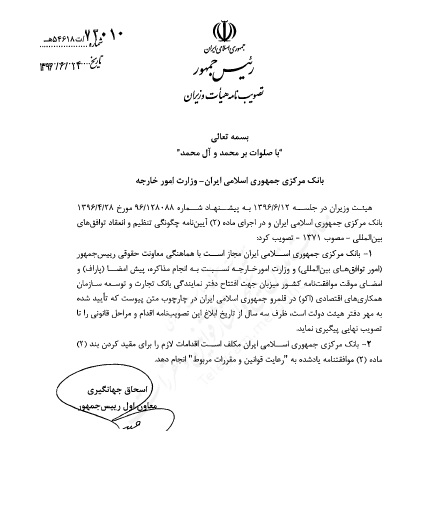 جمهوری اسلامی ایران
رئیس جمهور
تصویب نامه هیأت وزیران
شماره ۷۲۰۱۰/ت۵۴۶۱۸هـ
تاریخ ۱۳۹۶/۶/۲۴
بسمه تعالی
"با صلوات بر محمد و آل محمد"
بانک مرکزی جمهوری اسلامی ایران - وزارت امور خارجه
هیئت وزیران در جلسه ۱۳۹۶/۶/۱۲ به پیشنهاد شماره ۹۶/۱۲۸۰۸۸ مورخ ۱۳۹۶/۴/۲۸
بانک مرکزی جمهوری اسلامی ایران و در اجرای ماده (۲) آیین‌نامه چگونگی تنظیم و انعقاد توافق‌های
بین‌المللی - مصوب ۱۳۷۱ - تصویب کرد:
۱- بانک مرکزی جمهوری اسلامی ایران مجاز است با هماهنگی معاونت حقوقی رییس‌جمهور
(امور توافق‌های بین‌المللی) و وزارت امور خارجه نسبت به انجام مذاکره، پیش امضا (پاراف) و
امضای موقت موافقت‌نامه کشور میزبان جهت افتتاح دفتر نمایندگی بانک تجارت و توسعه سازمان
همکاری‌های اقتصادی (اکو) در قلمرو جمهوری اسلامی ایران در چارچوب متن پیوست که تأیید شده
به مهر دفتر هیئت دولت است، ظرف سه سال از تاریخ ابلاغ این تصویب‌نامه اقدام و مراحل قانونی را تا
تصویب نهایی پیگیری نماید.
۲- بانک مرکزی جمهوری اسلامی ایران مکلف است اقدامات لازم را برای مقید کردن بند (۲)
ماده (۲) موافقتنامه یادشده به "رعایت قوانین و مقررات مربوط" انجام دهد.
اسحاق جهانگیری
معاون اول رییس‌جمهور